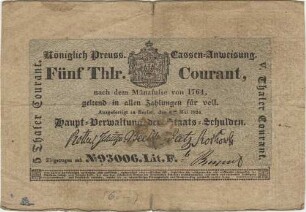 Königlich Preuss. Cassen-Anweisung.
Fünf Thlr. Courant,
nach dem Münzfusse von 1764,
geltend in allen Zahlungen für voll.
Ausgefertigt zu Berlin, den
Haupt-Verwaltung der Staats-Schulden.
Eingetragen sub. No 93006. Lit. F.
5 Thaler Courant.
V. Thaler Courant.